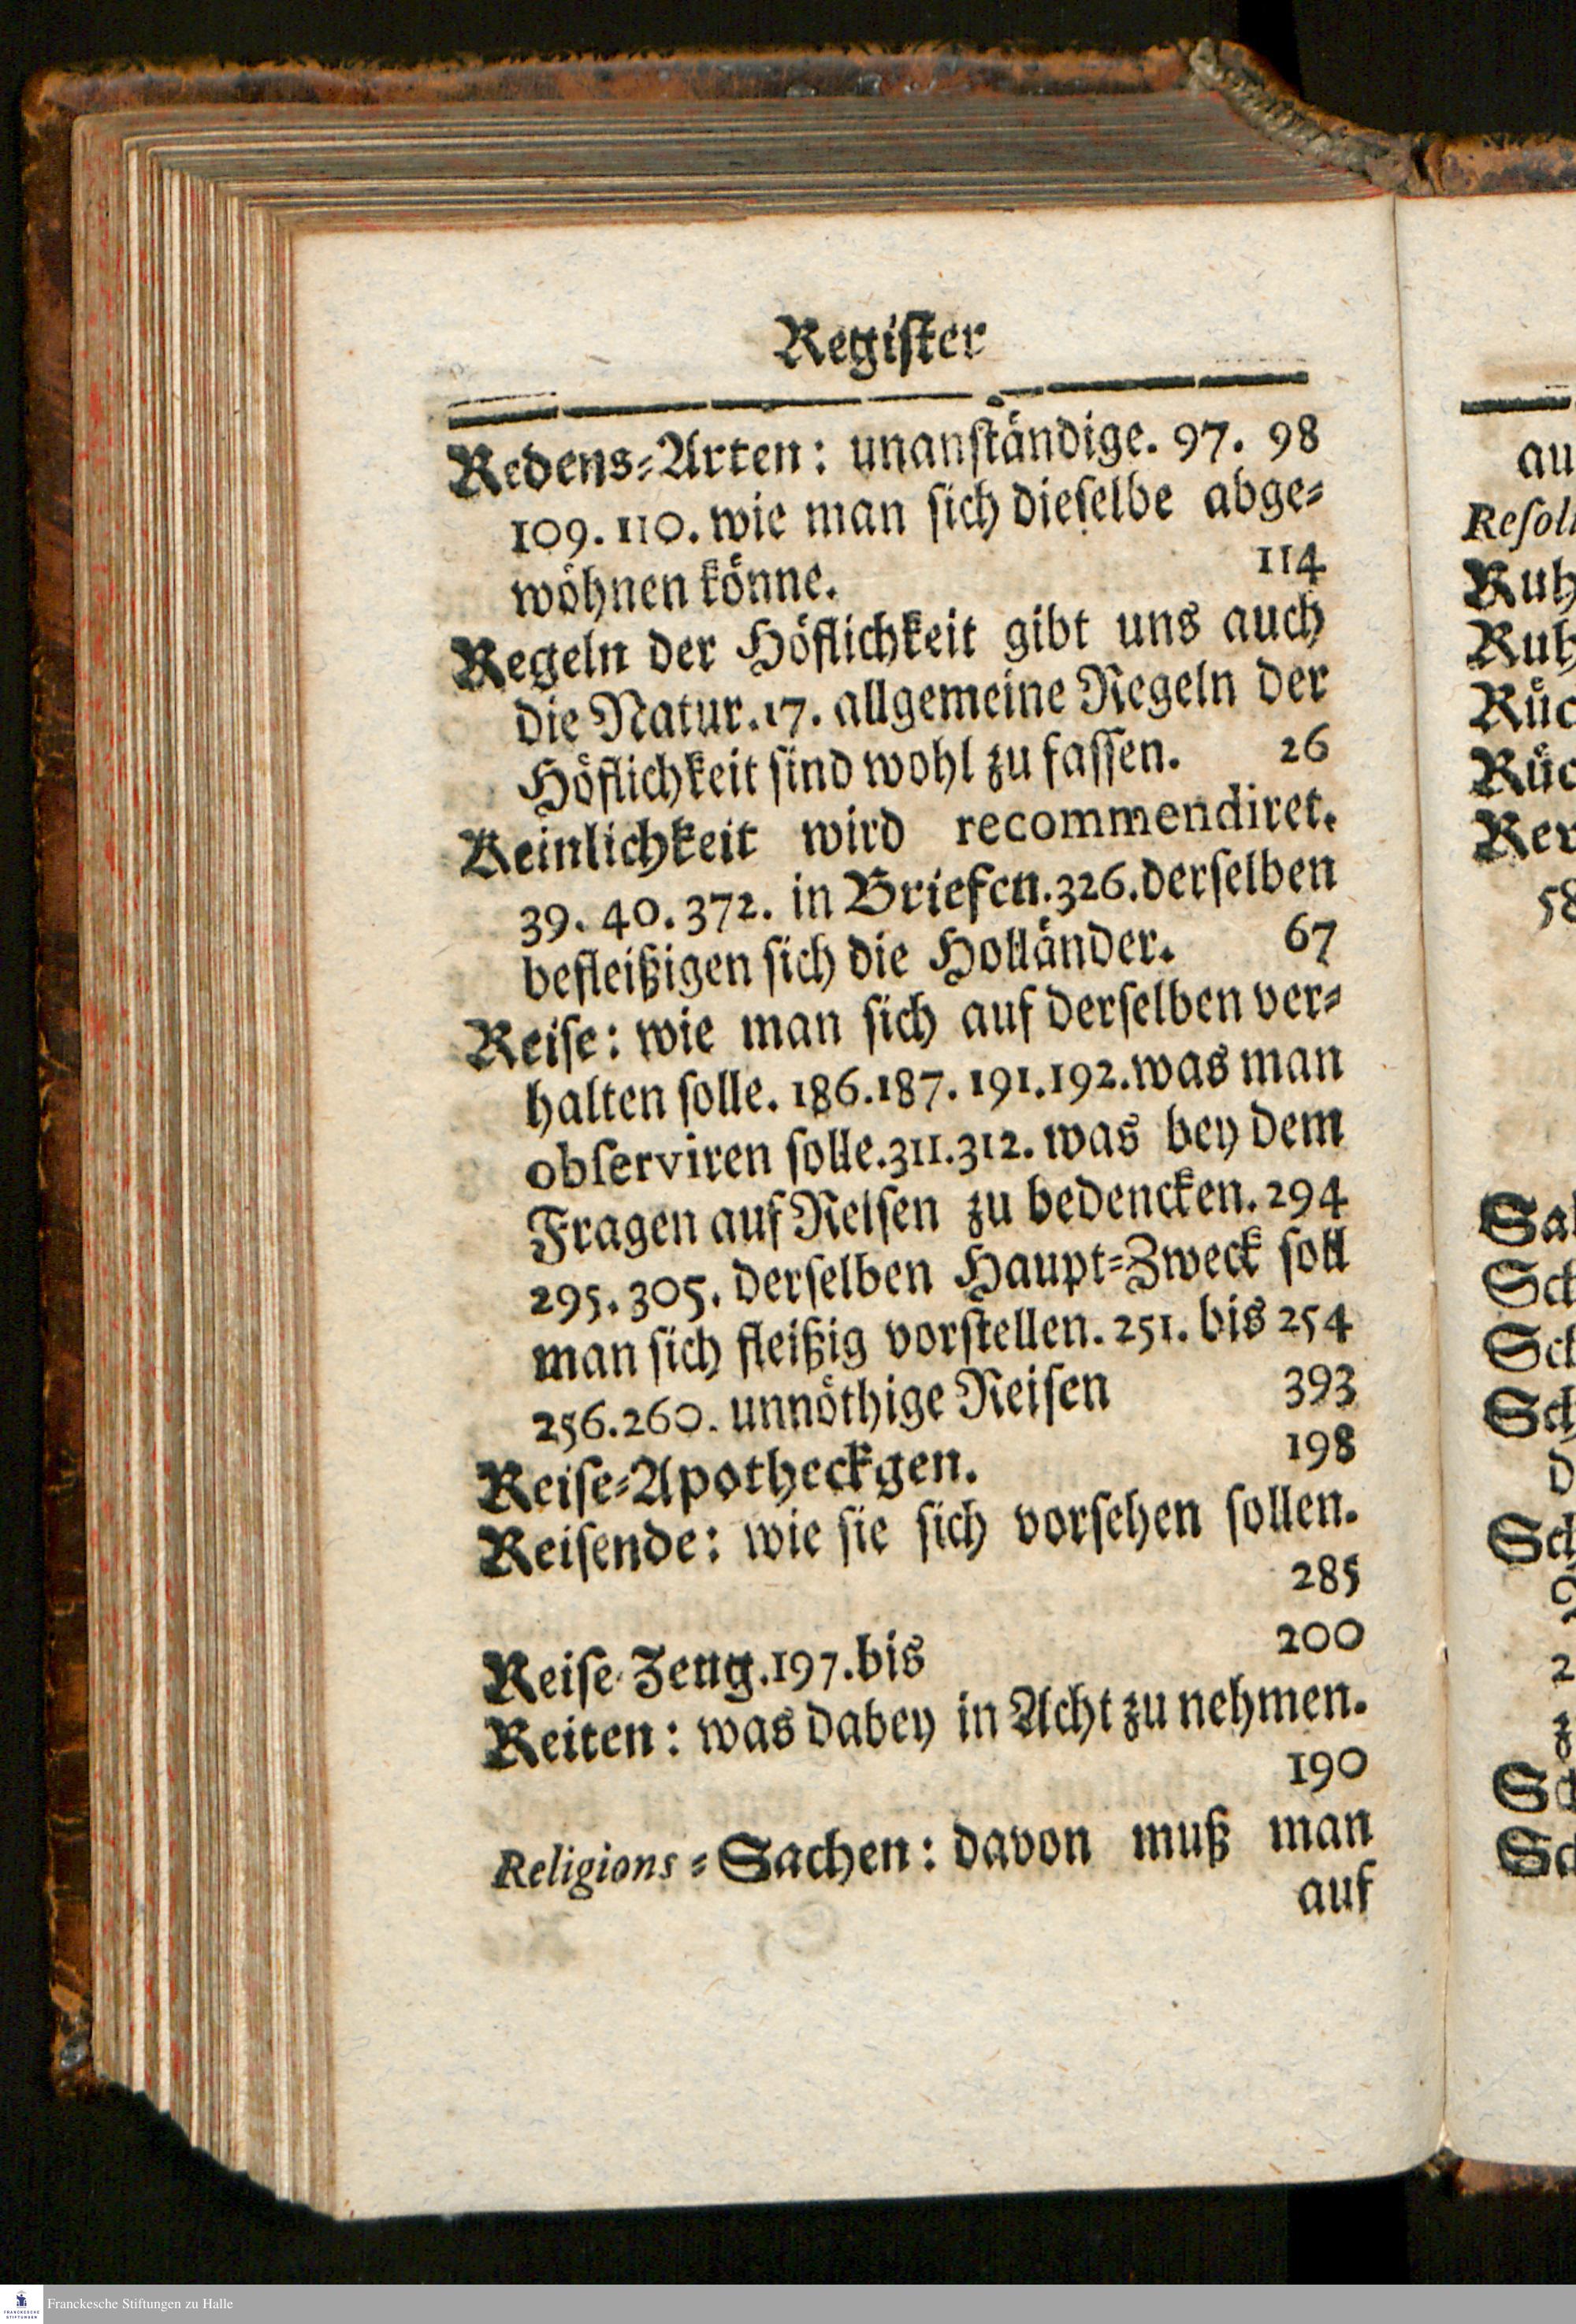 Register
Redens-Arten: unanständige. 97. 98
109. 110. wie man sich dieselbe abge-
wöhnen könne. 114
Regeln der Höflichkeit gibt uns auch
die Natur. 17. allgemeine Regeln der
Höflichkeit sind wohl zu fassen. 26
Reinlichkeit wird recommendiret.
39. 40. 372. in Briefen. 326. derselben
befleißigen sich die Holländer. 67
Reise: wie man sich auf derselben ver-
halten solle. 186. 187. 191. 192. was man
observiren solle. 311. 312. was bey dem
Fragen auf Reisen zu bedencken. 294
295. 305. derselben Haupt-Zweck soll
man sich fleißig vorstellen. 251. bis 254
256. 260. unnöthige Reisen 393
Reise-Apotheckgen. 198
Reisende: wie sie sich vorsehen sollen.
285
Reise-Zeug. 197. bis 200
Reiten: was dabey in Acht zu nehmen.
190
Religions-Sachen: davon muß man
auf
au
Resol
Ruh
Ruh
Rüc
Rüc
58
Sch
Sch
Franckesche Stiftungen zu Halle